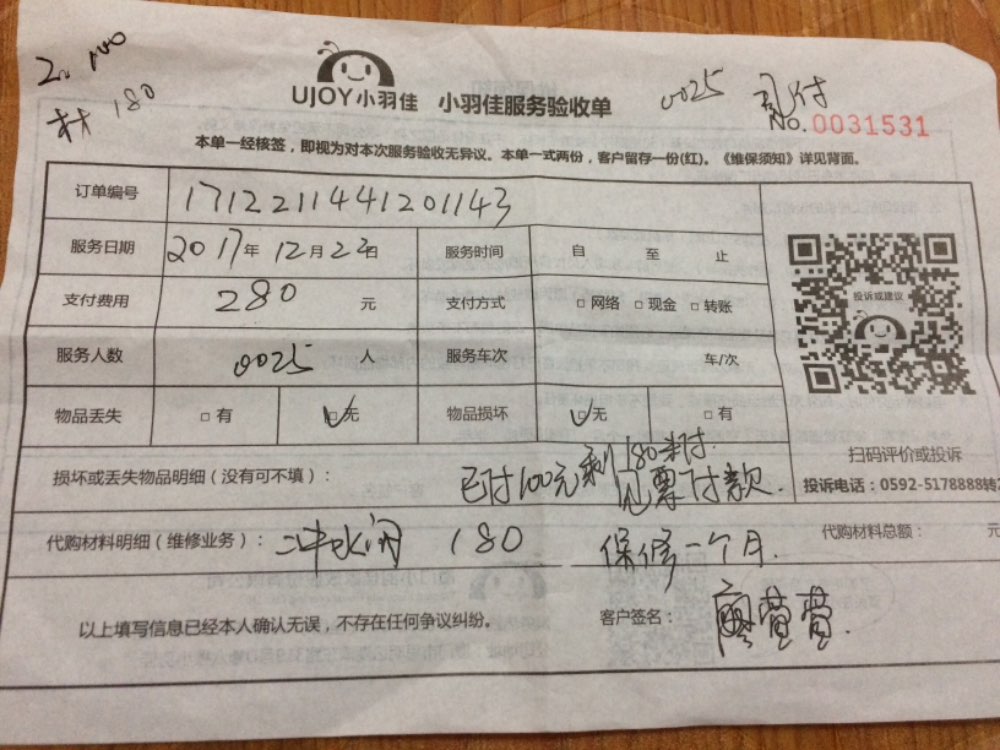 材 180
UJOY小羽佳 小羽佳服务验收单
0025
No.0031531
本单一经核签，即视为对本次服务验收无异议。本单一式两份，客户留存一份(红)。《维保须知》详见背面。
订单编号 1712211441201143
服务日期 2017年 12月 22日 服务时间 自 至 止
支付费用 280 元 支付方式 □网络 □现金 □转账
投诉或建议
服务人数 0025 人 服务车次 车/次
物品丢失 □有 □无 物品损坏 □无 □有
扫码评价或投诉
损坏或丢失物品明细（没有可不填）： 已付100元剩180未付.
见票付款.
投诉电话：0592-5178888转
代购材料明细（维修业务）： 冲水阀 180 保修一个月. 代购材料总额： 元
以上填写信息已经本人确认无误，不存在任何争议纠纷。 客户签名：